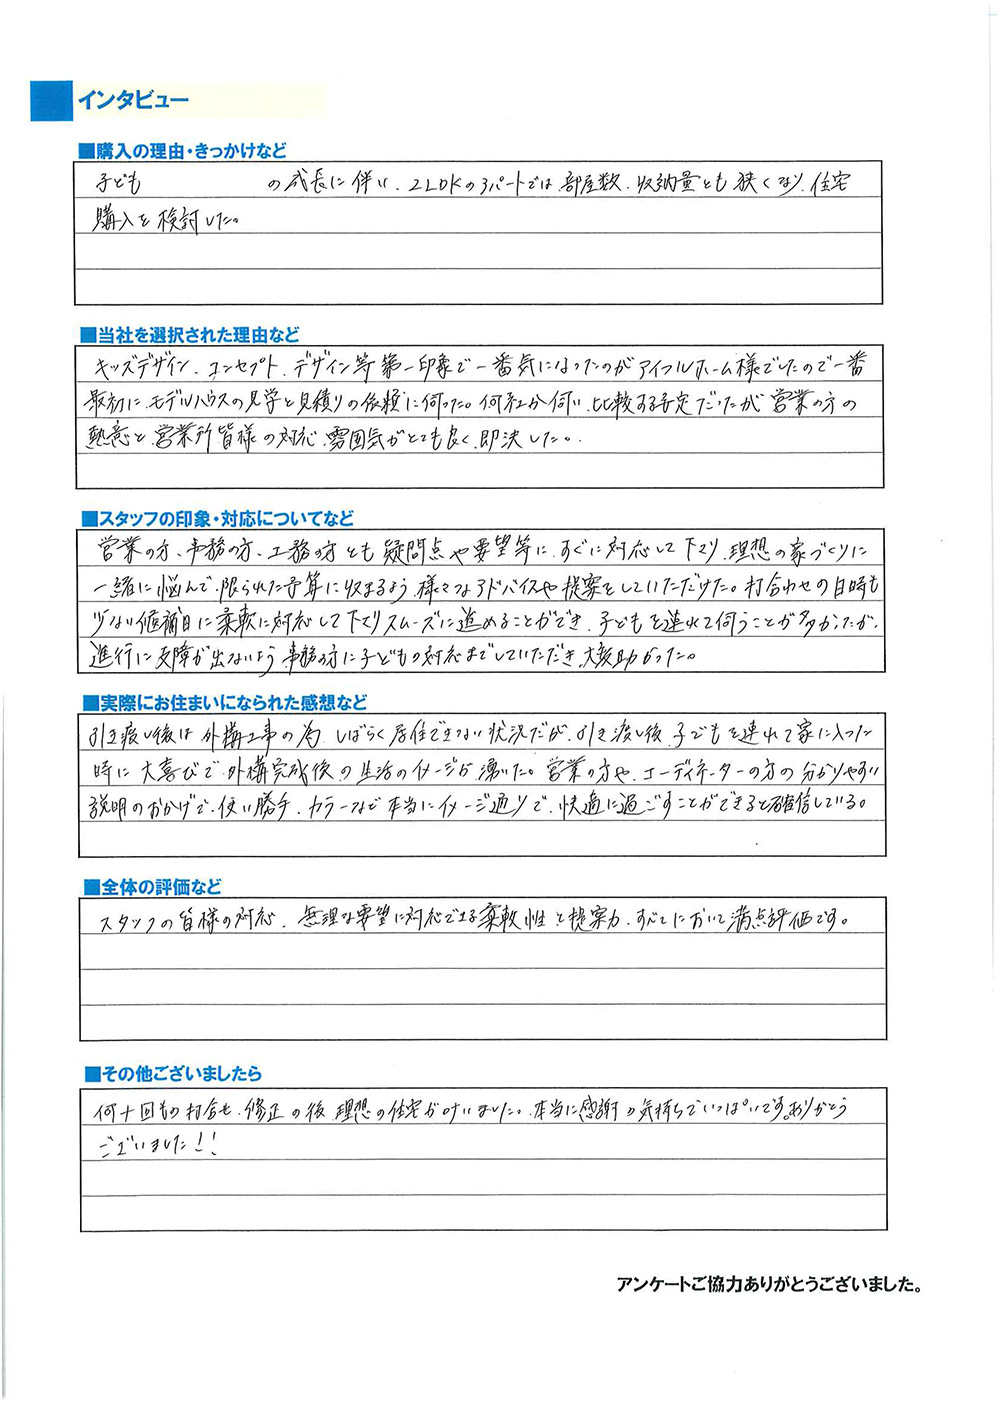 インタビュー
■購入の理由・きっかけなど
子ども の成長に伴い、2LDKのアパートでは部屋数、収納量とも狭くなり、住宅
購入を検討した。
■当社を選択された理由など
キッズデザイン、コンセプト、デザイン等第一印象で一番気になったのがアイフルホーム様でしたので一番
最初にモデルハウスの見学と見積りの依頼に伺った。何社か伺い、比較する予定だったが、営業の方の
熱意と、営業所皆様の対応、雰囲気がとても良く、即決した。
■スタッフの印象・対応についてなど
営業の方、事務の方、工務の方とも疑問点や要望等に、すぐに対応して下さり、理想の家づくりに
一緒に悩んで、限られた予算に収まるよう、様々なアドバイスや提案をしていただけた。打合わせの日時も
少ない候補日に柔軟に対応して下さりスムーズに進めることができ、子どもを連れて伺うことが多かったが、
進行に支障が出ないよう事務の方に子どもの対応までしていただき、大変助かった。
■実際にお住まいになられた感想など
引き渡し後は外構工事の為、しばらく居住できない状況だが、引き渡し後、子どもを連れて家に入った
時に大喜びで、外構完成後の生活のイメージが湧いた。営業の方や、コーディネーターの方の分かりやすい
説明のおかげで、使い勝手、カラーなど本当にイメージ通りで、快適に過ごすことができると確信している。
■全体の評価など
スタッフの皆様の対応、無理な要望に対応できる柔軟性と提案力、すべてにおいて満点評価です。
■その他ございましたら
何十回もの打合せ、修正の後、理想の住宅が叶いました。本当に感謝の気持ちでいっぱいです。ありがとう
ございました!!
アンケートご協力ありがとうございました。